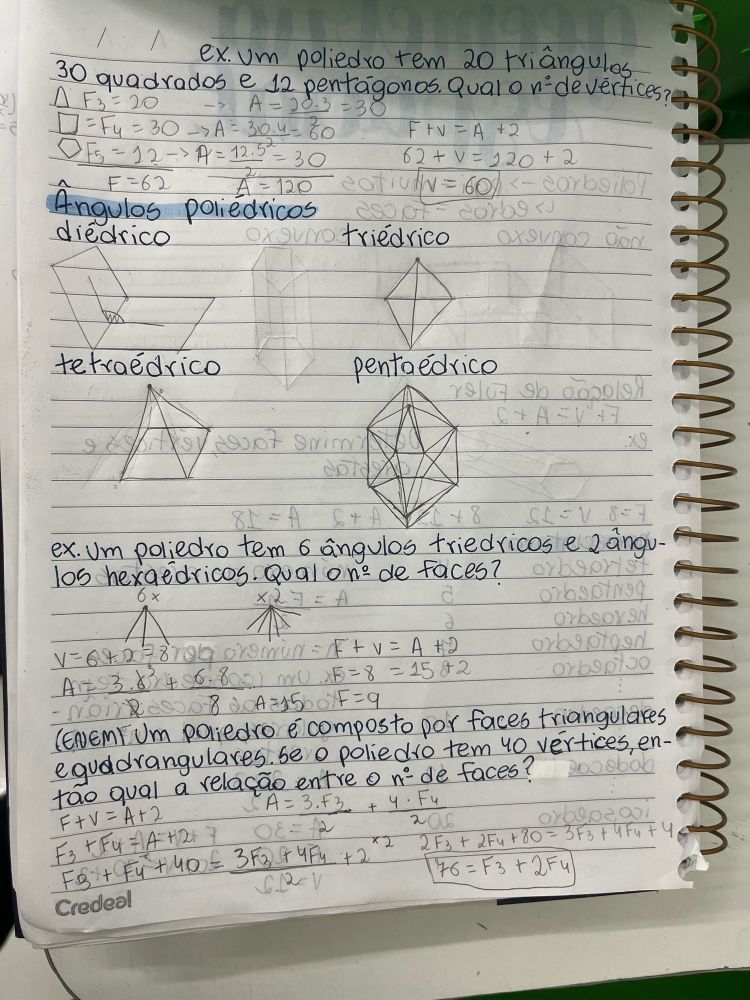 ex. Um poliedro tem 20 triângulos
30 quadrados e 12 pentágonos. Qual o nº de vértices?
F3 = 20 -> A = 20.3 = 30
2
= F4 = 30 -> A = 30.4 = 60 F + V = A + 2
F5 = 12 -> A = 12.5 = 30 62 + V = 120 + 2
2
F = 62 A = 120 V = 60
Ângulos poliédricos
diédrico triédrico
tetraédrico pentaédrico
ex. Um poliedro tem 6 ângulos triedricos e 2 ângu-
los hexaédricos. Qual o nº de faces?
6x x2
V = 6 + 2 = 8 F + V = A + 2
F = 8 = 15 + 2
A = 15 F = 9
(ENEM) Um poliedro é composto por faces triangulares
e quadrangulares. Se o poliedro tem 40 vértices, en-
tão qual a relação entre o nº de faces?
F + V = A + 2 A = 3.F3 + 4.F4
2 2
F3 + F4 = A + 2
F3 + F4 + 40 = 3F3 + 4F4 + 2 x2 2F3 + 2F4 + 80 = 3F3 + 4F4 + 4
2
76 = F3 + 2F4
Credeal